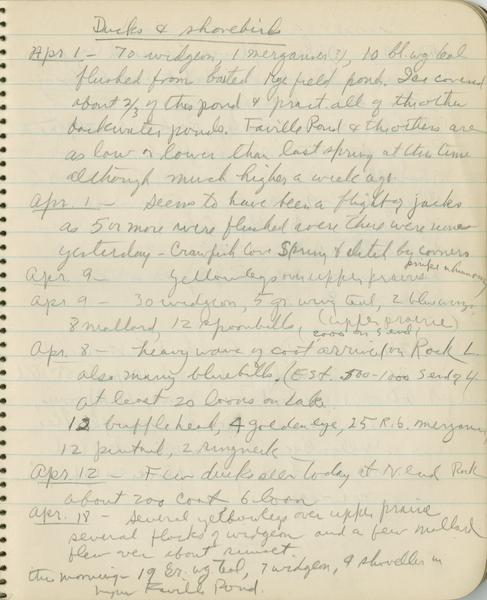 Ducks & shorebirds
Apr 1 - 70 widgeon, 1 merganser (?), 10 bl. wg teal
flushed from baited Rye field pond. Ice covered
about 2/3 of this pond & pract. all of the other
backwater ponds. Faville Pond & the others are
as low or lower than last spring at this time
although much higher a week ago.
Apr. 1 - Seems to have been a flight of jacks
as 5 or more were flushed where there were none
yesterday - Crawfish Cove Spring & by corners
Apr 9 - Yellowlegs on upper prairie
Apr 9 - 30 widgeon, 5 gr. wing teal, 2 blue wing,
8 mallard, 12 spoonbills, (upper prairie)
Apr. 8 - heavy wave of coot arrived on Rock L.
also many bluebills. (Est. 500-1000
at least 20 loons on lake
12 bufflehead, 4 goldeneye, 25 R.b. mergansers,
12 pintail, 2 ringneck -
Apr. 12 - Few ducks seen today at N end Rock
about 200 coot 6 loon
Apr. 18 - Several yellowlegs over upper prairie
several flocks of widgeon and a few mallard
flew over about sunset.
this morning - 19 Gr. wg teal, 7 widgeon, 9 shoveller in
upper Faville Pond.